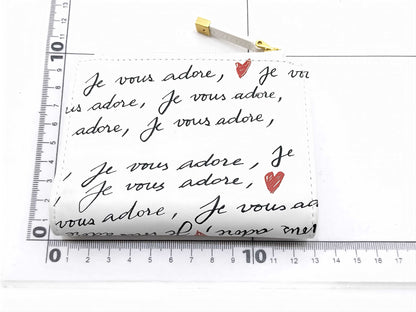 Je vous adore, Je vou
us adore, Je vous adore,
adore, Je vous adore,
, Je vous adore, Je
, Je vous adore,
vous adore, Je vous ad
10
0
0 1 2 3 4 5 6 7 8 9 10 11 12 13 14 15 16 17